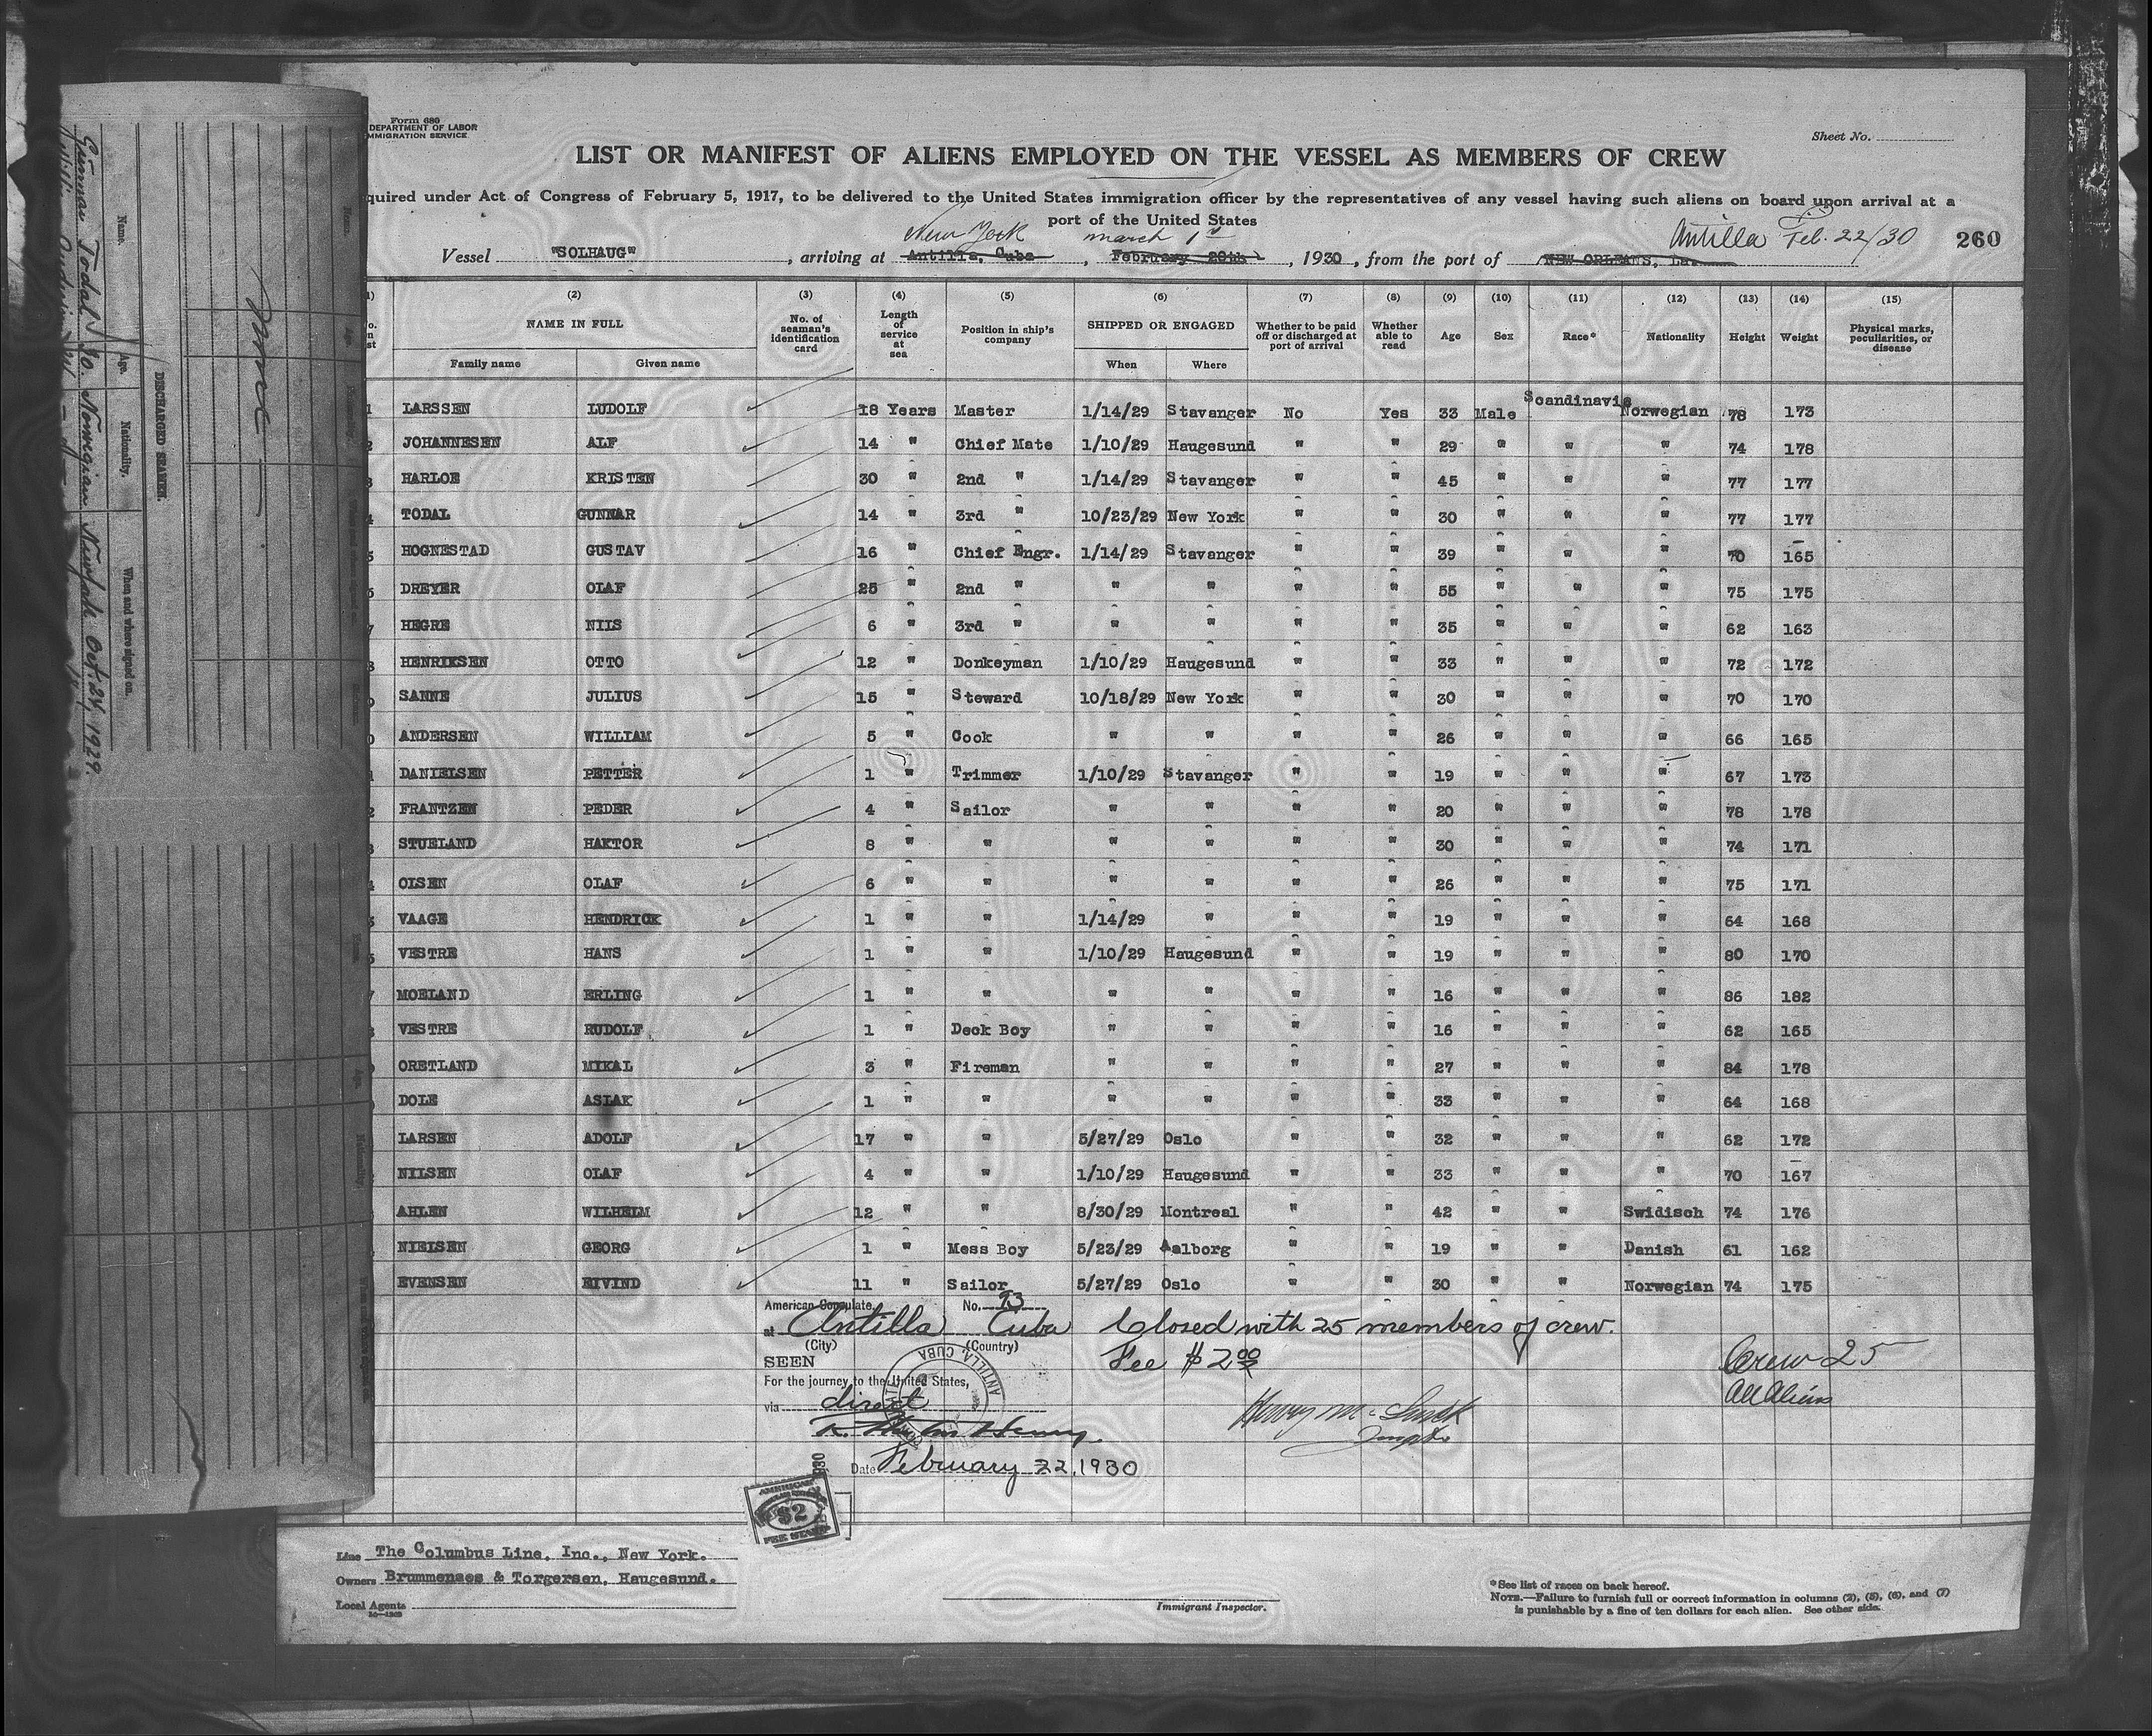 Form 680
DEPARTMENT OF LABOR
MMIGRATION SERVICE
Sheet No.
LIST OR MANIFEST OF ALIENS EMPLOYED ON THE VESSEL AS MEMBERS OF CREW
quired under Act of Congress of February 5, 1917, to be delivered to the United States immigration officer by the representatives of any vessel having such aliens on board upon arrival at a
port of the United States
New York march 1st Antilla Feb. 22/30 260
Vessel "SOLHAUG", arriving at Antilla, Cuba, February 20th, 1930, from the port of NEW ORLEANS, La.
(2) (3) (4) (5) (6) (7) (8) (9) (10) (11) (12) (13) (14) (15)
NAME IN FULL No. of seaman's identification card Length of service at sea Position in ship's company SHIPPED OR ENGAGED Whether to be paid off or discharged at port of arrival Whether able to read Age Sex Race* Nationality Height Weight Physical marks, peculiarities, or disease
Family name Given name When Where
1 LARSSEN LUDOLF 18 Years Master 1/14/29 Stavanger No Yes 33 Male Scandinavia Norwegian 78 173
JOHANNESEN ALF 14 " Chief Mate 1/10/29 Haugesund " " 29 " " " 74 178
HARLOE KRISTEN 30 " 2nd " 1/14/29 Stavanger " " 45 " " " 77 177
TODAL GUNNAR 14 " 3rd " 10/23/29 New York " " 30 " " " 77 177
HOGNESTAD GUSTAV 16 " Chief Engr. 1/14/29 Stavanger " " 39 " " " 70 165
DREYER OLAF 25 " 2nd " " " " " 55 " " " 75 175
HEGRE NILS 6 " 3rd " " " " " 35 " " " 62 163
HENRIKSEN OTTO 12 " Donkeyman 1/10/29 Haugesund " " 33 " " " 72 172
SANNE JULIUS 15 " Steward 10/18/29 New York " " 30 " " " 70 170
ANDERSEN WILLIAM 5 " Cook " " " " 26 " " " 66 165
DANIELSEN PETTER 1 " Trimmer 1/10/29 Stavanger " " 19 " " " 67 173
FRANTZEN PEDER 4 " Sailor " " " " 20 " " " 78 178
STUELAND HAKTOR 8 " " " " " " 30 " " " 74 171
OLSEN OLAF 6 " " " " " " 26 " " " 75 171
VAAGE HENDRICK 1 " " 1/14/29 " " " 19 " " " 64 168
VESTRE HANS 1 " " 1/10/29 Haugesund " " 19 " " " 80 170
MOELAND ERLING 1 " " " " " " 16 " " " 86 182
VESTRE RUDOLF 1 " Deck Boy " " " " 16 " " " 62 165
ORETLAND MIKAL 3 " Fireman " " " " 27 " " " 84 178
DOLE ASLAK 1 " " " " " " 33 " " " 64 168
LARSEN ADOLF 17 " " 5/27/29 Oslo " " 32 " " " 62 172
NILSEN OLAF 4 " " 1/10/29 Haugesund " " 33 " " " 70 167
AHLEN WILHELM 12 " " 8/30/29 Montreal " " 42 " " Swidisch 74 176
NIELSEN GEORG 1 " Mess Boy 5/23/29 Aalborg " " 19 " " Danish 61 162
EVENSEN EIVIND 11 " Sailor 5/27/29 Oslo " " 30 " " Norwegian 74 175
American Consulate, No. 93
at Antilla Cuba Closed with 25 members of crew.
(City) (Country)
SEEN Fee $2.00 Crew 25
For the journey to the United States, All Aliens
via direct
Henry
Date February 22, 1930
ANTILLA, CUBA
AMERICAN
$2
FEE STAMP
Line The Columbus Line, Inc., New York.
Owners Brummenaes & Torgersen, Haugesund.
Local Agents
Immigrant Inspector.
*See list of races on back hereof.
NOTE.—Failure to furnish full or correct information in columns (2), (5), (6), and (7)
is punishable by a fine of ten dollars for each alien. See other side.
DISCHARGED SEAMEN.
Name. Age. Nationality. When and where signed on.
Gunnar Todal 30. Norwegian Oct. 24, 1929.